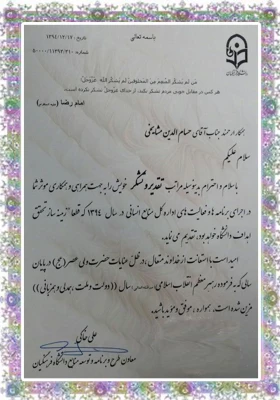 باسمه تعالی
تاریخ: ۱۳۹۴/۱۲/۱۷
شماره: ۵۰۰۰۰/۱۱۴۹۳/۳۱۰
مَن لَم یَشکُرِ المُنعِمَ مِنَ المَخلوقینَ لَم یَشکُرِ اللهَ عَزَّوَجَلَّ
هر کس در مقابل خوبی مردم تشکر نکند، از خدای عزّوجلّ تشکر نکرده است.
امام رضا (علیه السلام)
همکار ارجمند جناب آقای حسام الدین مشایخی
سلام علیکم
با سلام و احترام بدینوسیله مراتب تقدیر و تشکر خویش را به جهت همراهی و همکاری موثر شما
در اجرای برنامه ها و فعالیت های اداره کل منابع انسانی در سال ۱۳۹۴ که قطعا زمینه ساز تحقق
اهداف دانشگاه خواهد بود، تقدیم می نماید.
امید است با استعانت از خداوند متعال، در ظل عنایات حضرت ولی عصر (عج) در پایان
سالی که به فرموده رهبر معظم انقلاب اسلامی، سال ((دولت و ملت، همدلی و همزبانی))
مزین شده است. همواره، موفق و موید باشید.
علی خاکی
معاون طرح و برنامه و توسعه منابع دانشگاه فرهنگیان